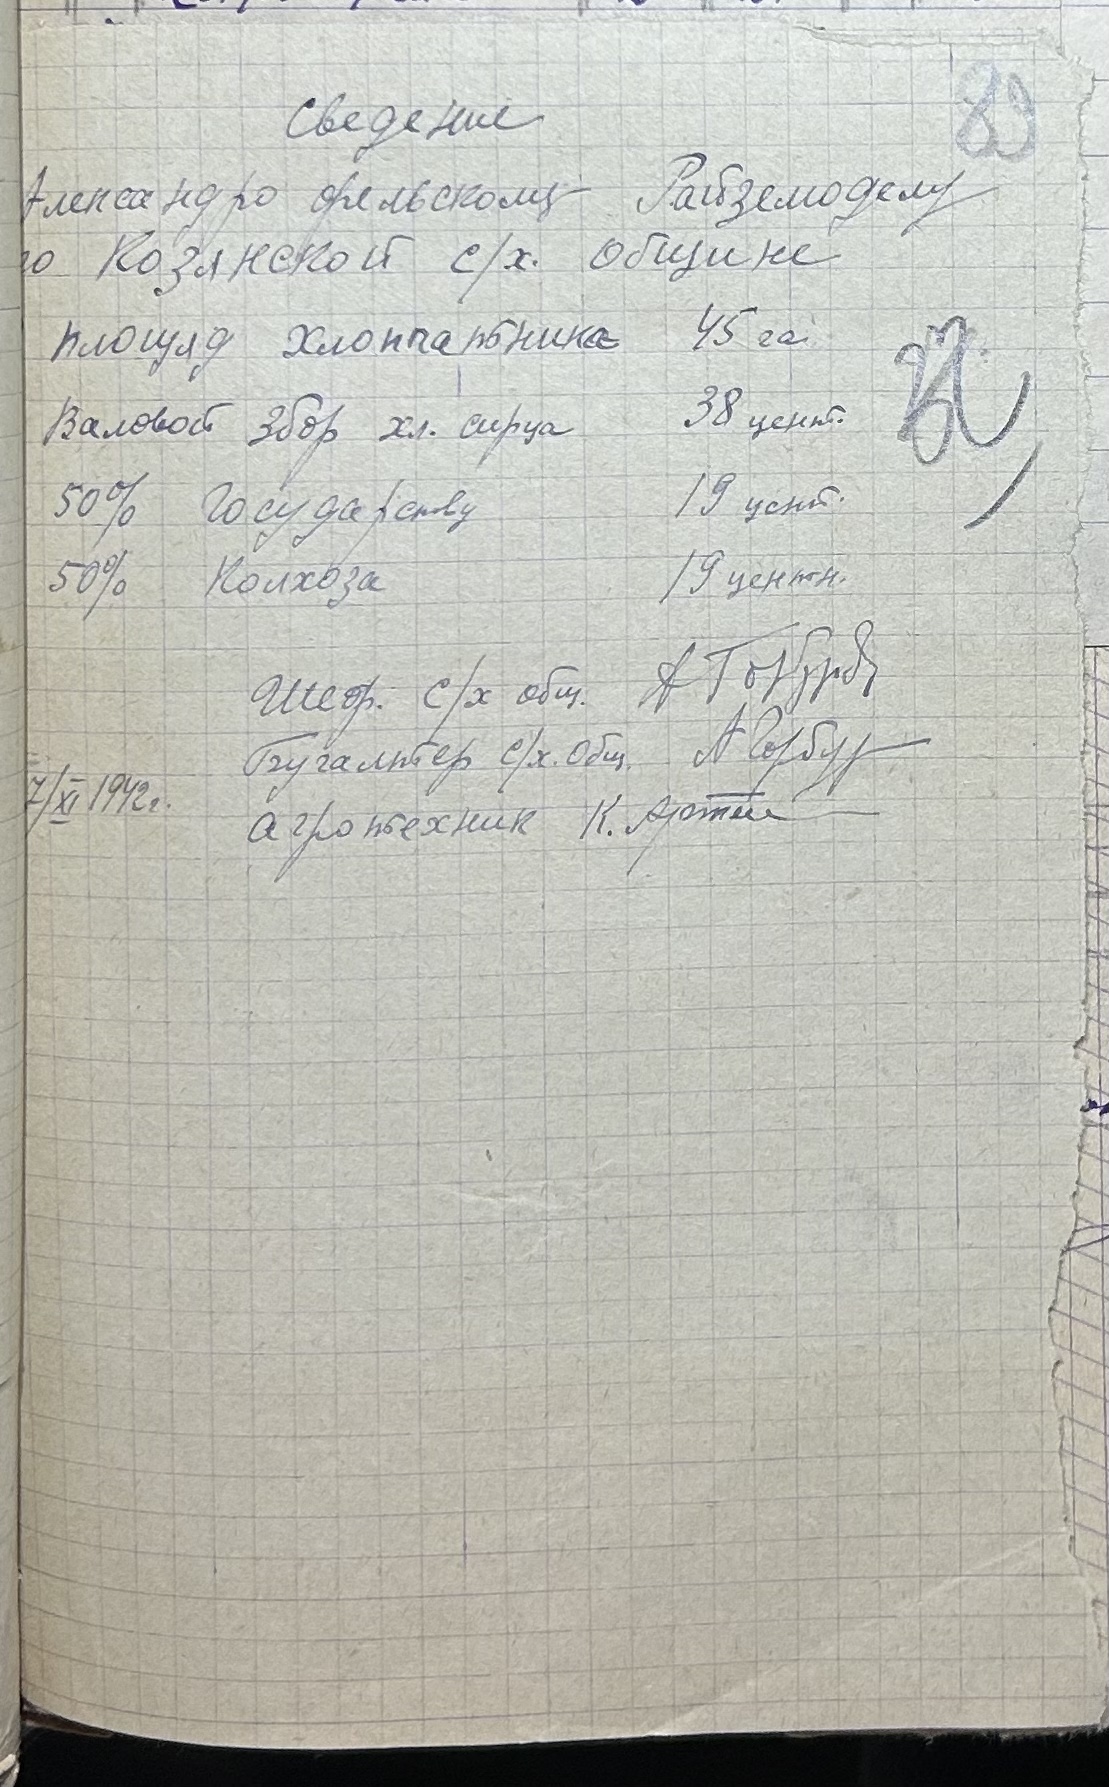 89
Сведение
Александрофельскому Райземоделу
по Козянской с/х. общине
площяд хлопчатника 45 га.
Валовой збор хл. сирца 38 цент.
50% Государству 19 цент.
50% Колхоза 19 центн.
Шеф. с/х общ.
Бугалтер с/х. Общ. А Горбур
7/XI 1942 г.
агротехник К.